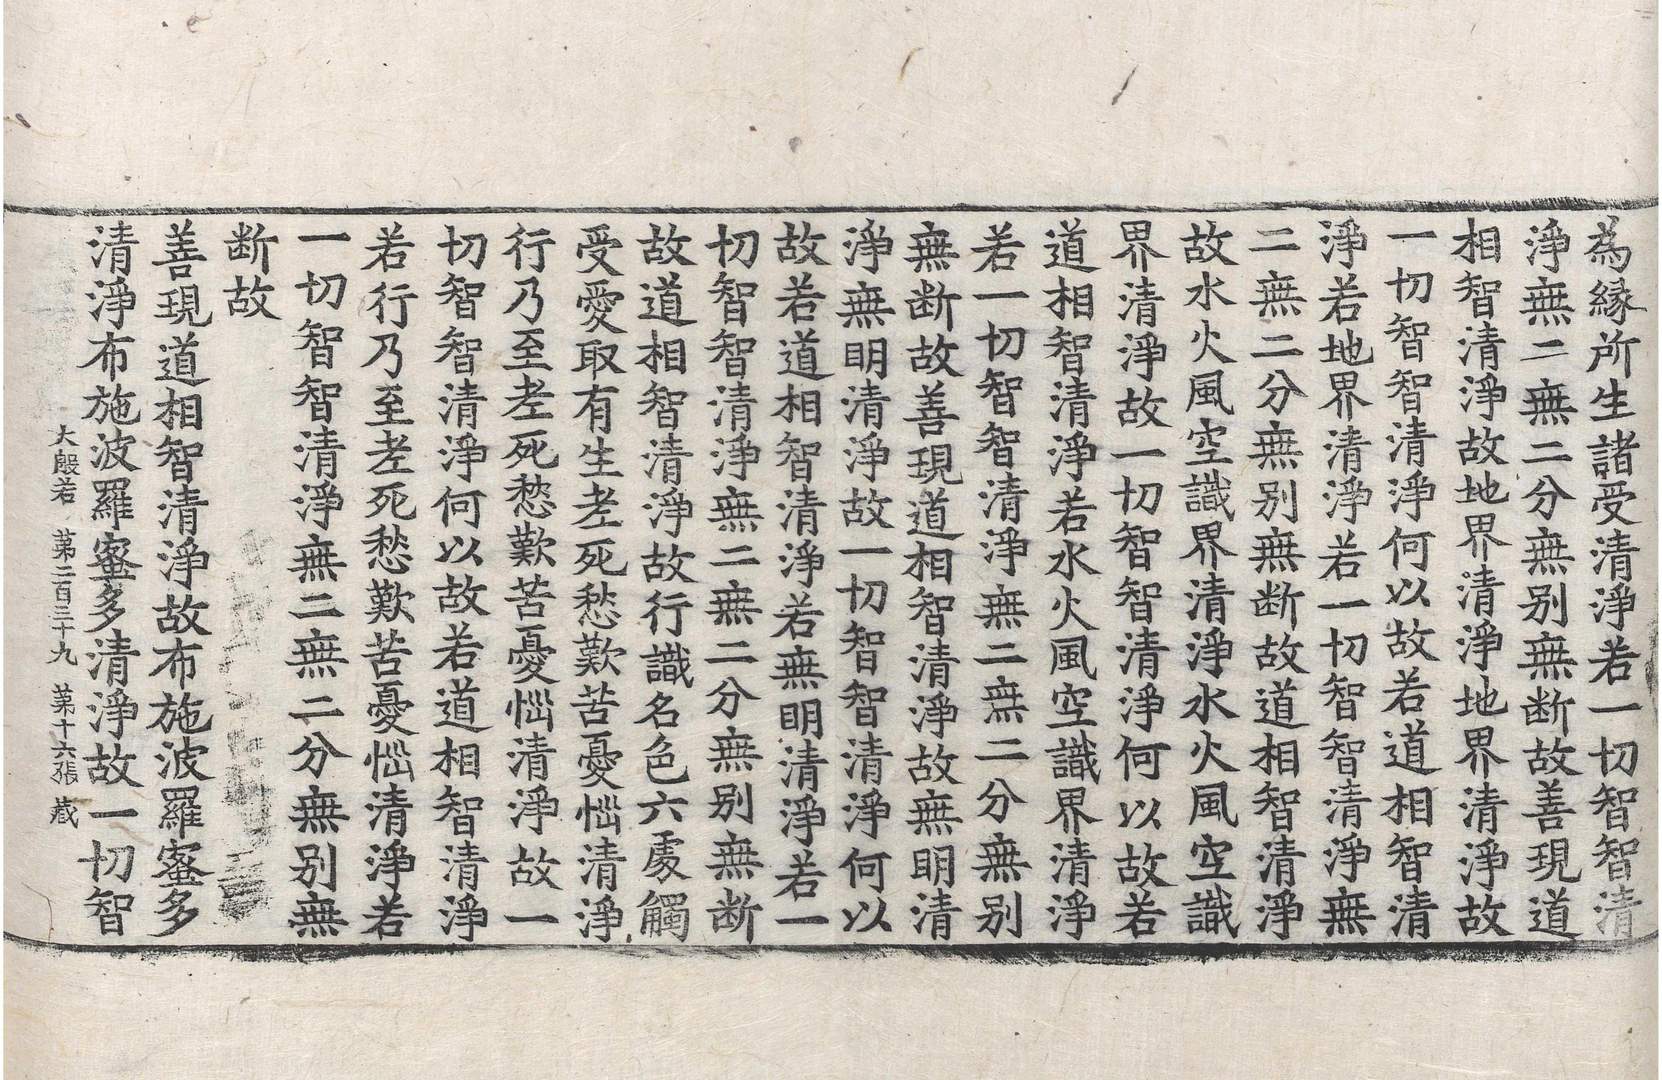 為緣所生諸受清淨若一切智智清
淨無二無二分無別無断故善現道
相智清淨故地界清淨地界清淨故
一切智智清淨何以故若道相智清
淨若地界清淨若一切智智清淨無
二無二分無别無断故道相智清淨
故水火風空識界清淨水火風空識
界清淨故一切智智清淨何以故若
道相智清淨若水火風空識界清淨
若一切智智清淨無二無二分無别
無断故善現道相智清淨故無明清
淨無明清淨故一切智智清淨何以
故若道相智清淨若無明清淨若一
切智智清淨無二無二分無别無断
故道相智清淨故行識名色六處觸
受愛取有生老死愁歎苦憂惱清淨
行乃至老死愁歎苦憂惱清淨故一
切智智清淨何以故若道相智清淨
若行乃至老死愁歎苦憂惱清淨若
一切智智清淨無二無二分無别無
断故
善現道相智清淨故布施波羅蜜多
清淨布施波羅蜜多清淨故一切智
大般若 第二百三十九 第十六張 藏